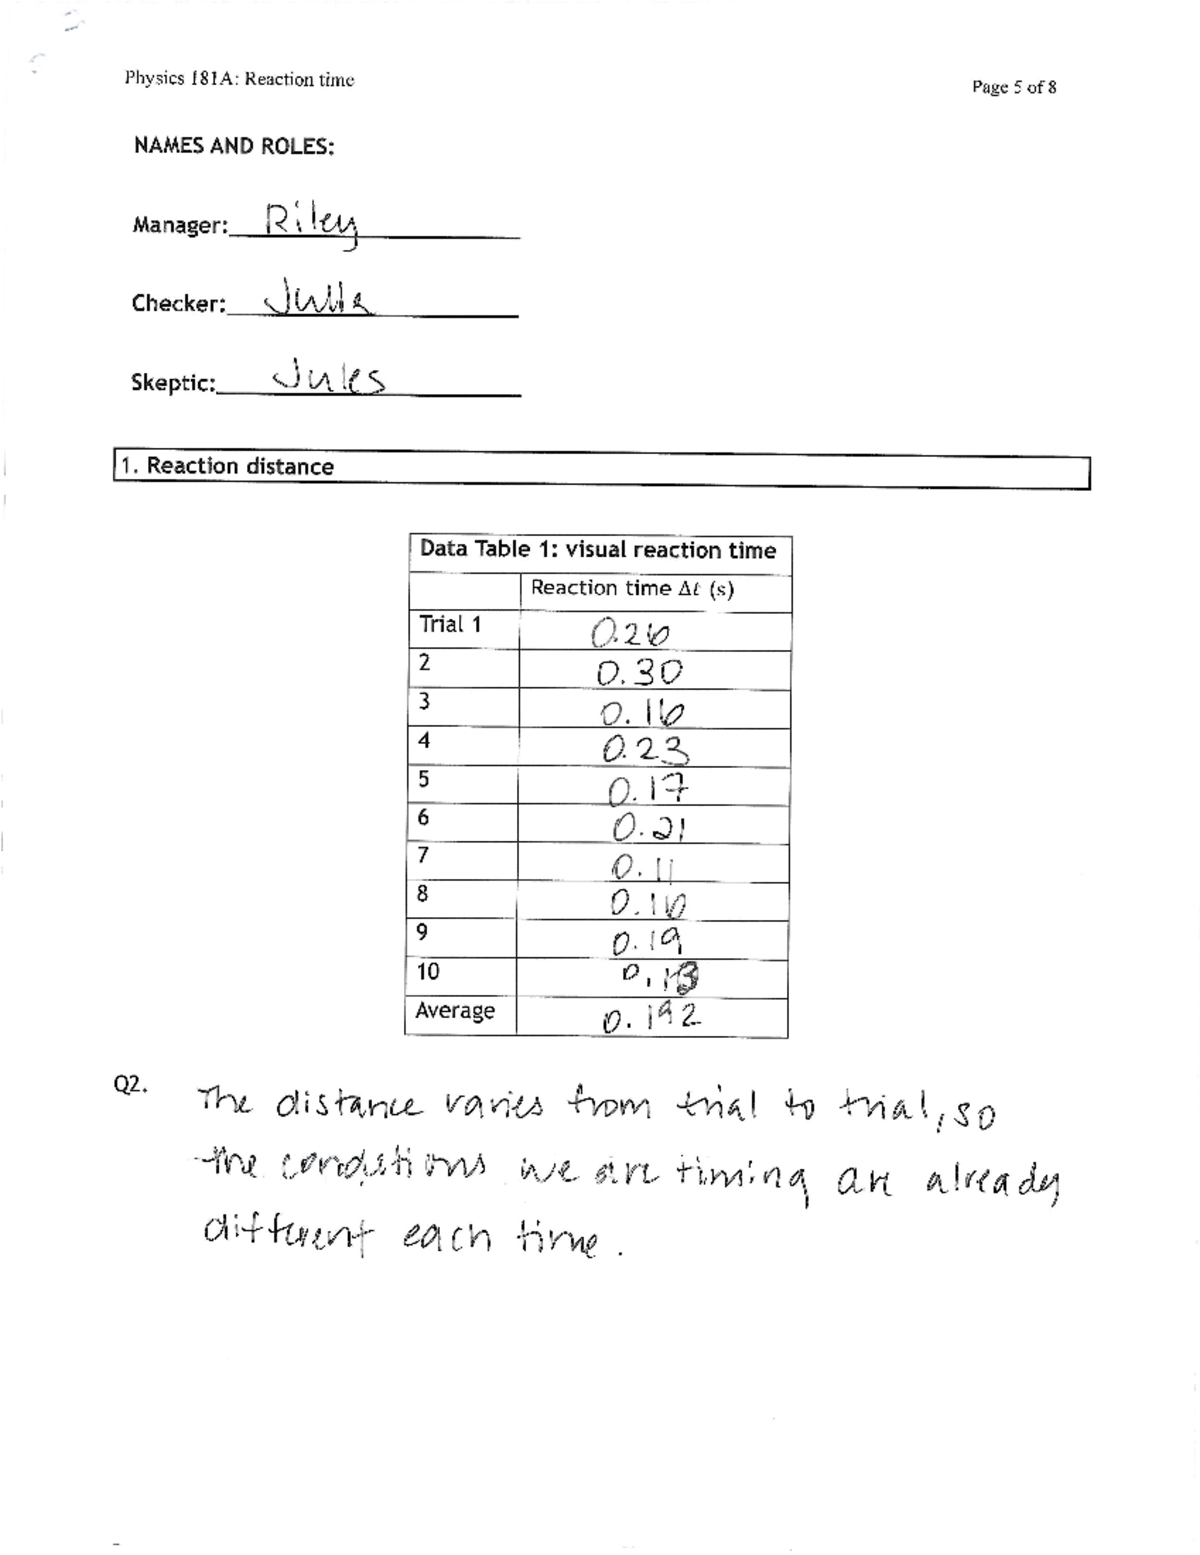 Physics 181A: Reaction time
Page 5 of 8
NAMES AND ROLES:
Manager: Riley
Checker: Julia
Skeptic: Jules
1. Reaction distance
Data Table 1: visual reaction time
Reaction time Δt (s)
Trial 1 0.26
2 0.30
3 0.16
4 0.23
5 0.17
6 0.21
7 0.11
8 0.16
9 0.19
10 0.13
Average 0.192
Q2. The distance varies from trial to trial, so
the conditions we are timing are already
different each time.